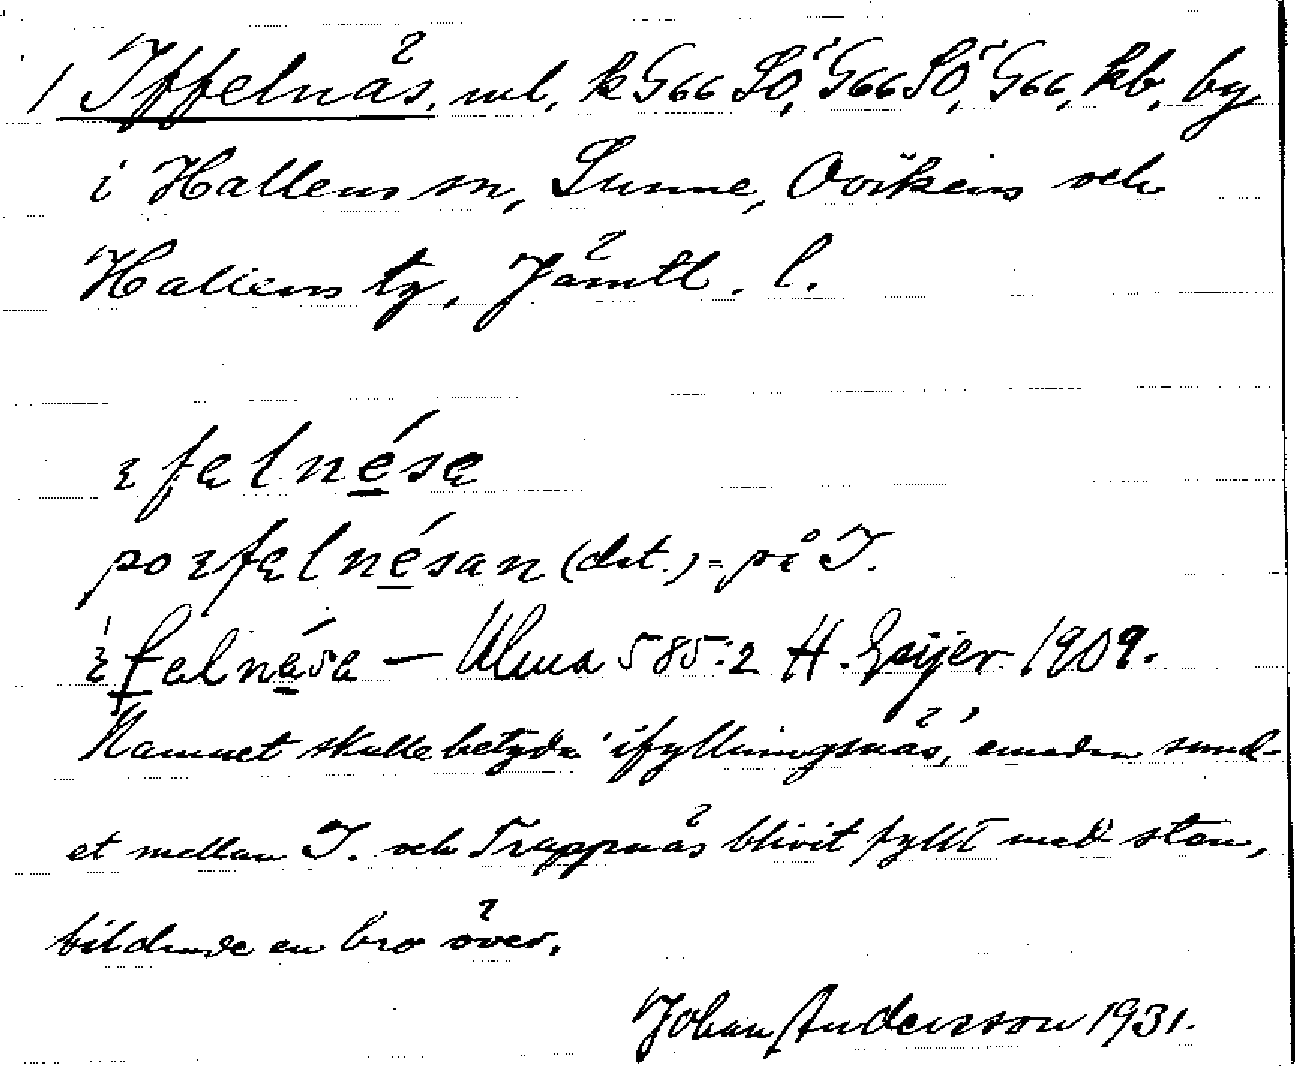 1 Iffelnäs, ul, k G66 SÖ, G66 SÖ, G66, kb, by
i Hallens sn, Sunne, Ovikens och
Hallens tg, Jämtl. l.
ɩfęlnése
po ɩfęlnésan (dat.) = på I.
ɩfęlnésa — Ulma 585:2 H. Geijer 1909.
Namnet skulle betyda 'ifyllningsnäs', emedan sund-
et mellan I. och Trappnäs blivit fyllt med sten,
bildande en bro över.
Johan Andersson 1931.